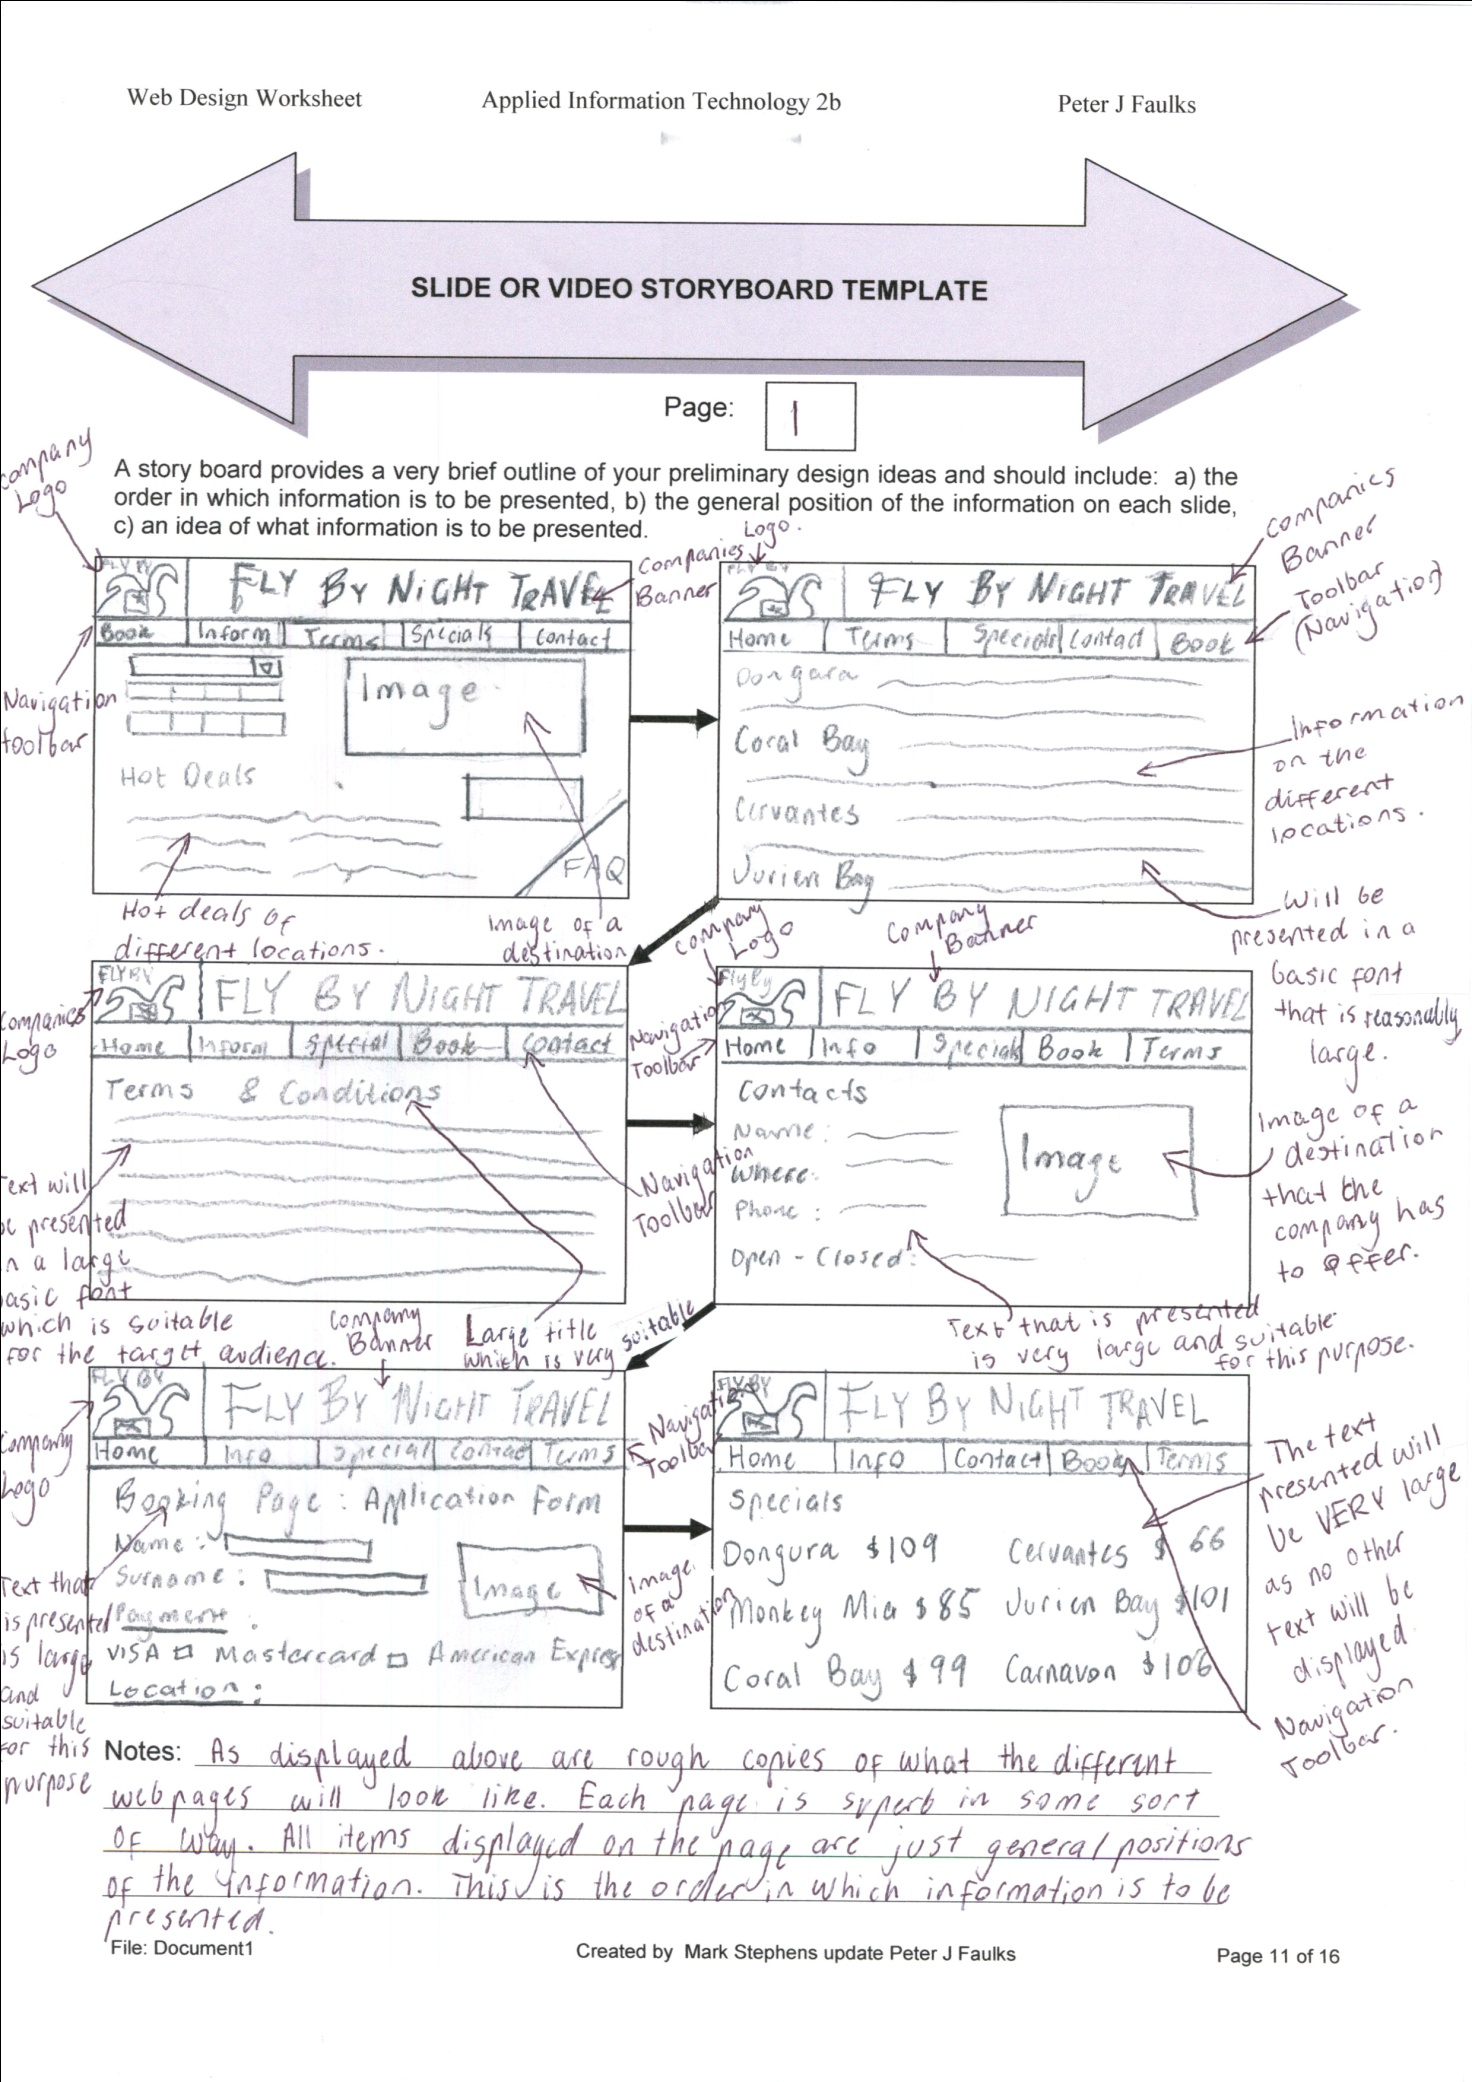 Web Design Worksheet Applied Information Technology 2b Peter J Faulks
SLIDE OR VIDEO STORYBOARD TEMPLATE
Page: 1
A story board provides a very brief outline of your preliminary design ideas and should include: a) the
order in which information is to be presented, b) the general position of the information on each slide,
c) an idea of what information is to be presented.
Company
Logo
FLY BY
FLY BY NIGHT TRAVEL
Companies
Banner
Book Inform Terms Specials Contact
Navigation
toolbar
Image
Hot Deals
FAQ
Hot deals of
different locations.
Image of a
destination
Logo.
FLY BY
FLY BY NIGHT TRAVEL
Companies
Banner
Toolbar
(Navigation)
Home Terms Specials Contact Book
Dongara
Coral Bay
Cervantes
Jurien Bay
Information
on the
different
locations.
Will be
presented in a
basic font
that is reasonably
large.
Companies
Logo
FLYBY
FLY BY NIGHT TRAVEL
Home Inform Special Book Contact
Terms & Conditions
Navigation
Toolbar
Text will
be presented
in a large
basic font
which is suitable
for the target audience.
Large title
which is very suitable
Company
Logo
Company
Banner
FlyBy
FLY BY NIGHT TRAVEL
Navigation
Toolbar
Home Info Specials Book Terms
Contacts
Name:
Where:
Phone :
Open - Closed:
Image
Image of a
destination
that the
company has
to offer.
Text that is presented
is very large and suitable
for this purpose.
Company
Banner
Company
Logo
FLY BY
FLY BY NIGHT TRAVEL
Navigation
Toolbar
Home Info Special Contact Terms
Booking Page : Application Form
Name :
Surname :
Payment :
VISA Mastercard American Express
Location :
Image
Image
of a
destination
Text that
is presented
is large
and
suitable
for this
purpose
FLY BY
FLY BY NIGHT TRAVEL
Home Info Contact Book Terms
Specials
Dongura $109 Cervantes $ 66
Monkey Mia $85 Jurien Bay $101
Coral Bay $99 Carnavon $106
The text
presented will
be VERY large
as no other
text will be
displayed
Navigation
Toolbar.
Notes: As displayed above are rough copies of what the different
webpages will look like. Each page is superb in some sort
of way. All items displayed on the page are just general positions
of the information. This is the order in which information is to be
presented.
File: Document1 Created by Mark Stephens update Peter J Faulks Page 11 of 16